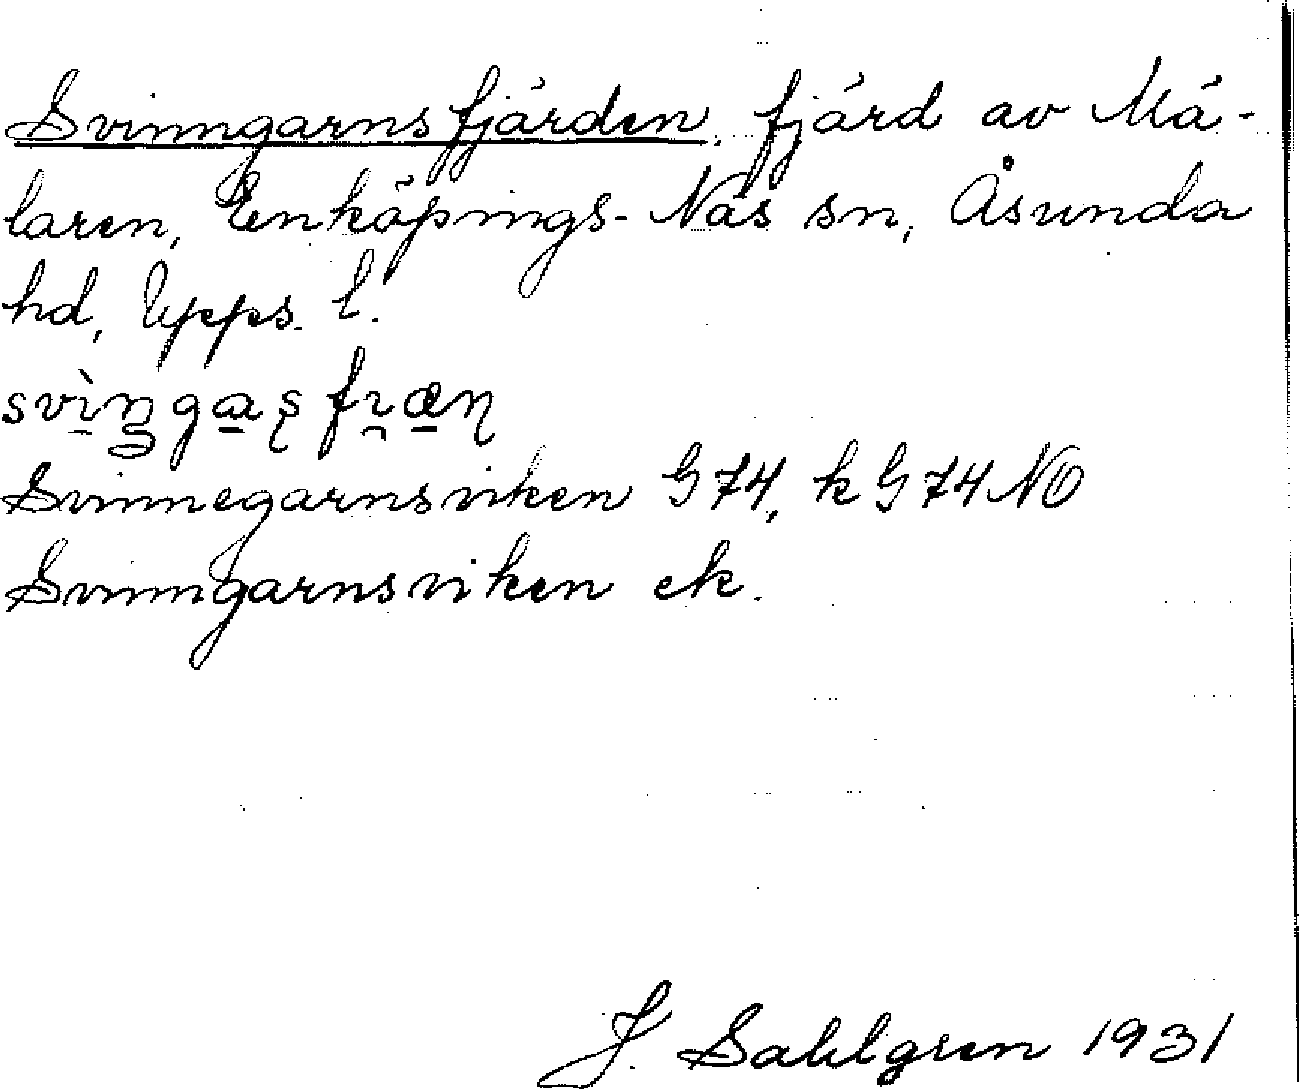 Svinngarnsfjärden, fjärd av Mä-
laren, Enköpings-Näs sn, Åsunda
hd, Upps. l.
Svinnegarnsviken G 74, k G 74 NO
Svinngarnsviken ek.
J. Sahlgren 1931